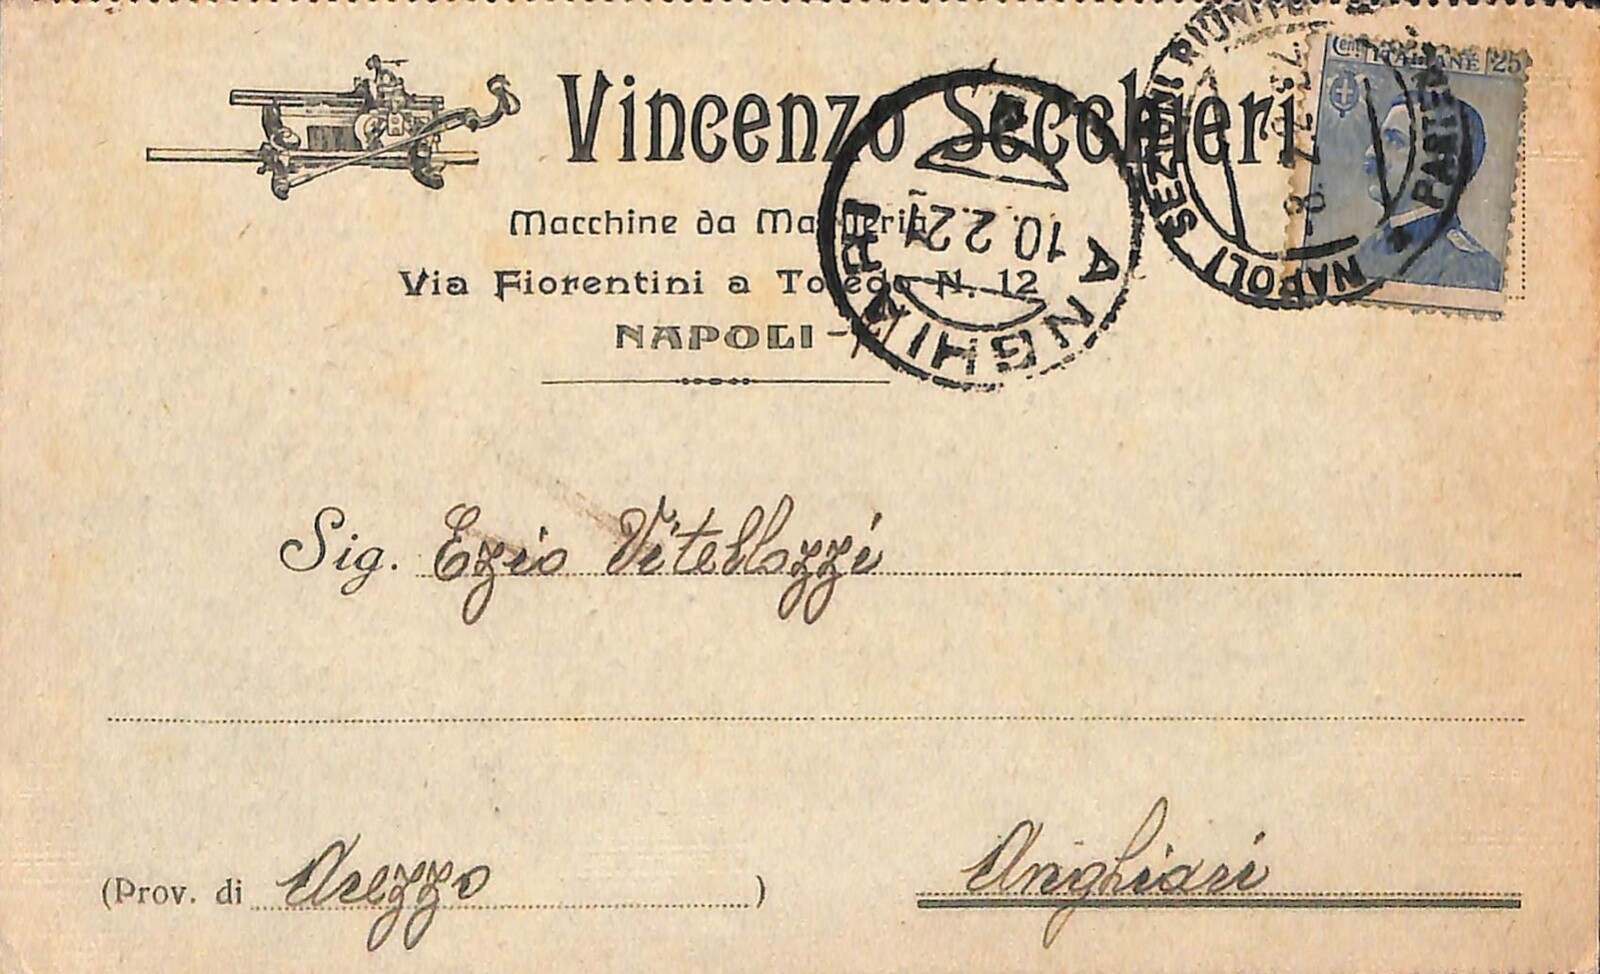 Vincenzo Secchieri
Macchine da Maglieria
Via Fiorentini a Toledo N. 12
NAPOLI
Cent. ITALIANE 25
NAPOLI SEZIONI RIUNITE
ANGHIARI
10.2.22
Sig. Ezio Vitellozzi
(Prov. di Arezzo)
Anghiari